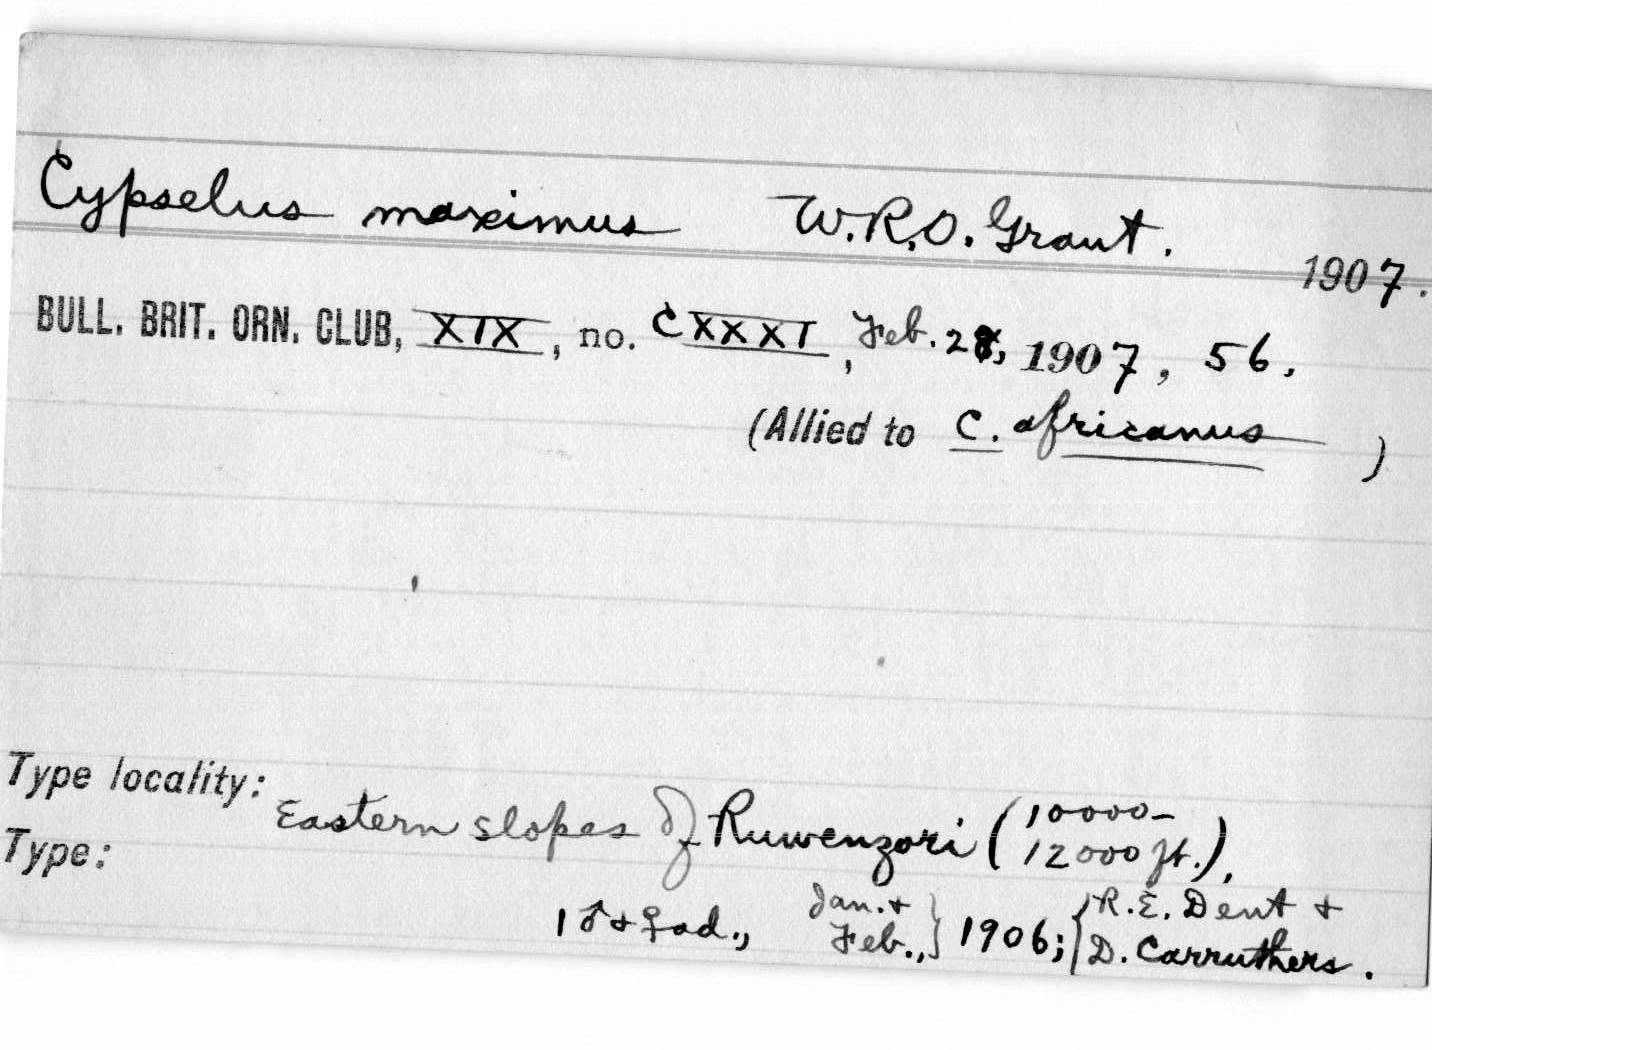 Cypselus maximus W.R.O. Grant.
1907.
BULL. BRIT. ORN. CLUB, XIX, no. CXXXI, Feb. 28, 1907, 56.
(Allied to C. africanus)
Type locality:
Eastern slopes of Ruwenzori (10000-
12000 ft.),
Type:
1♂+♀ad., Jan. + Feb.,} 1906; {R.E. Dent +
D. Carruthers.